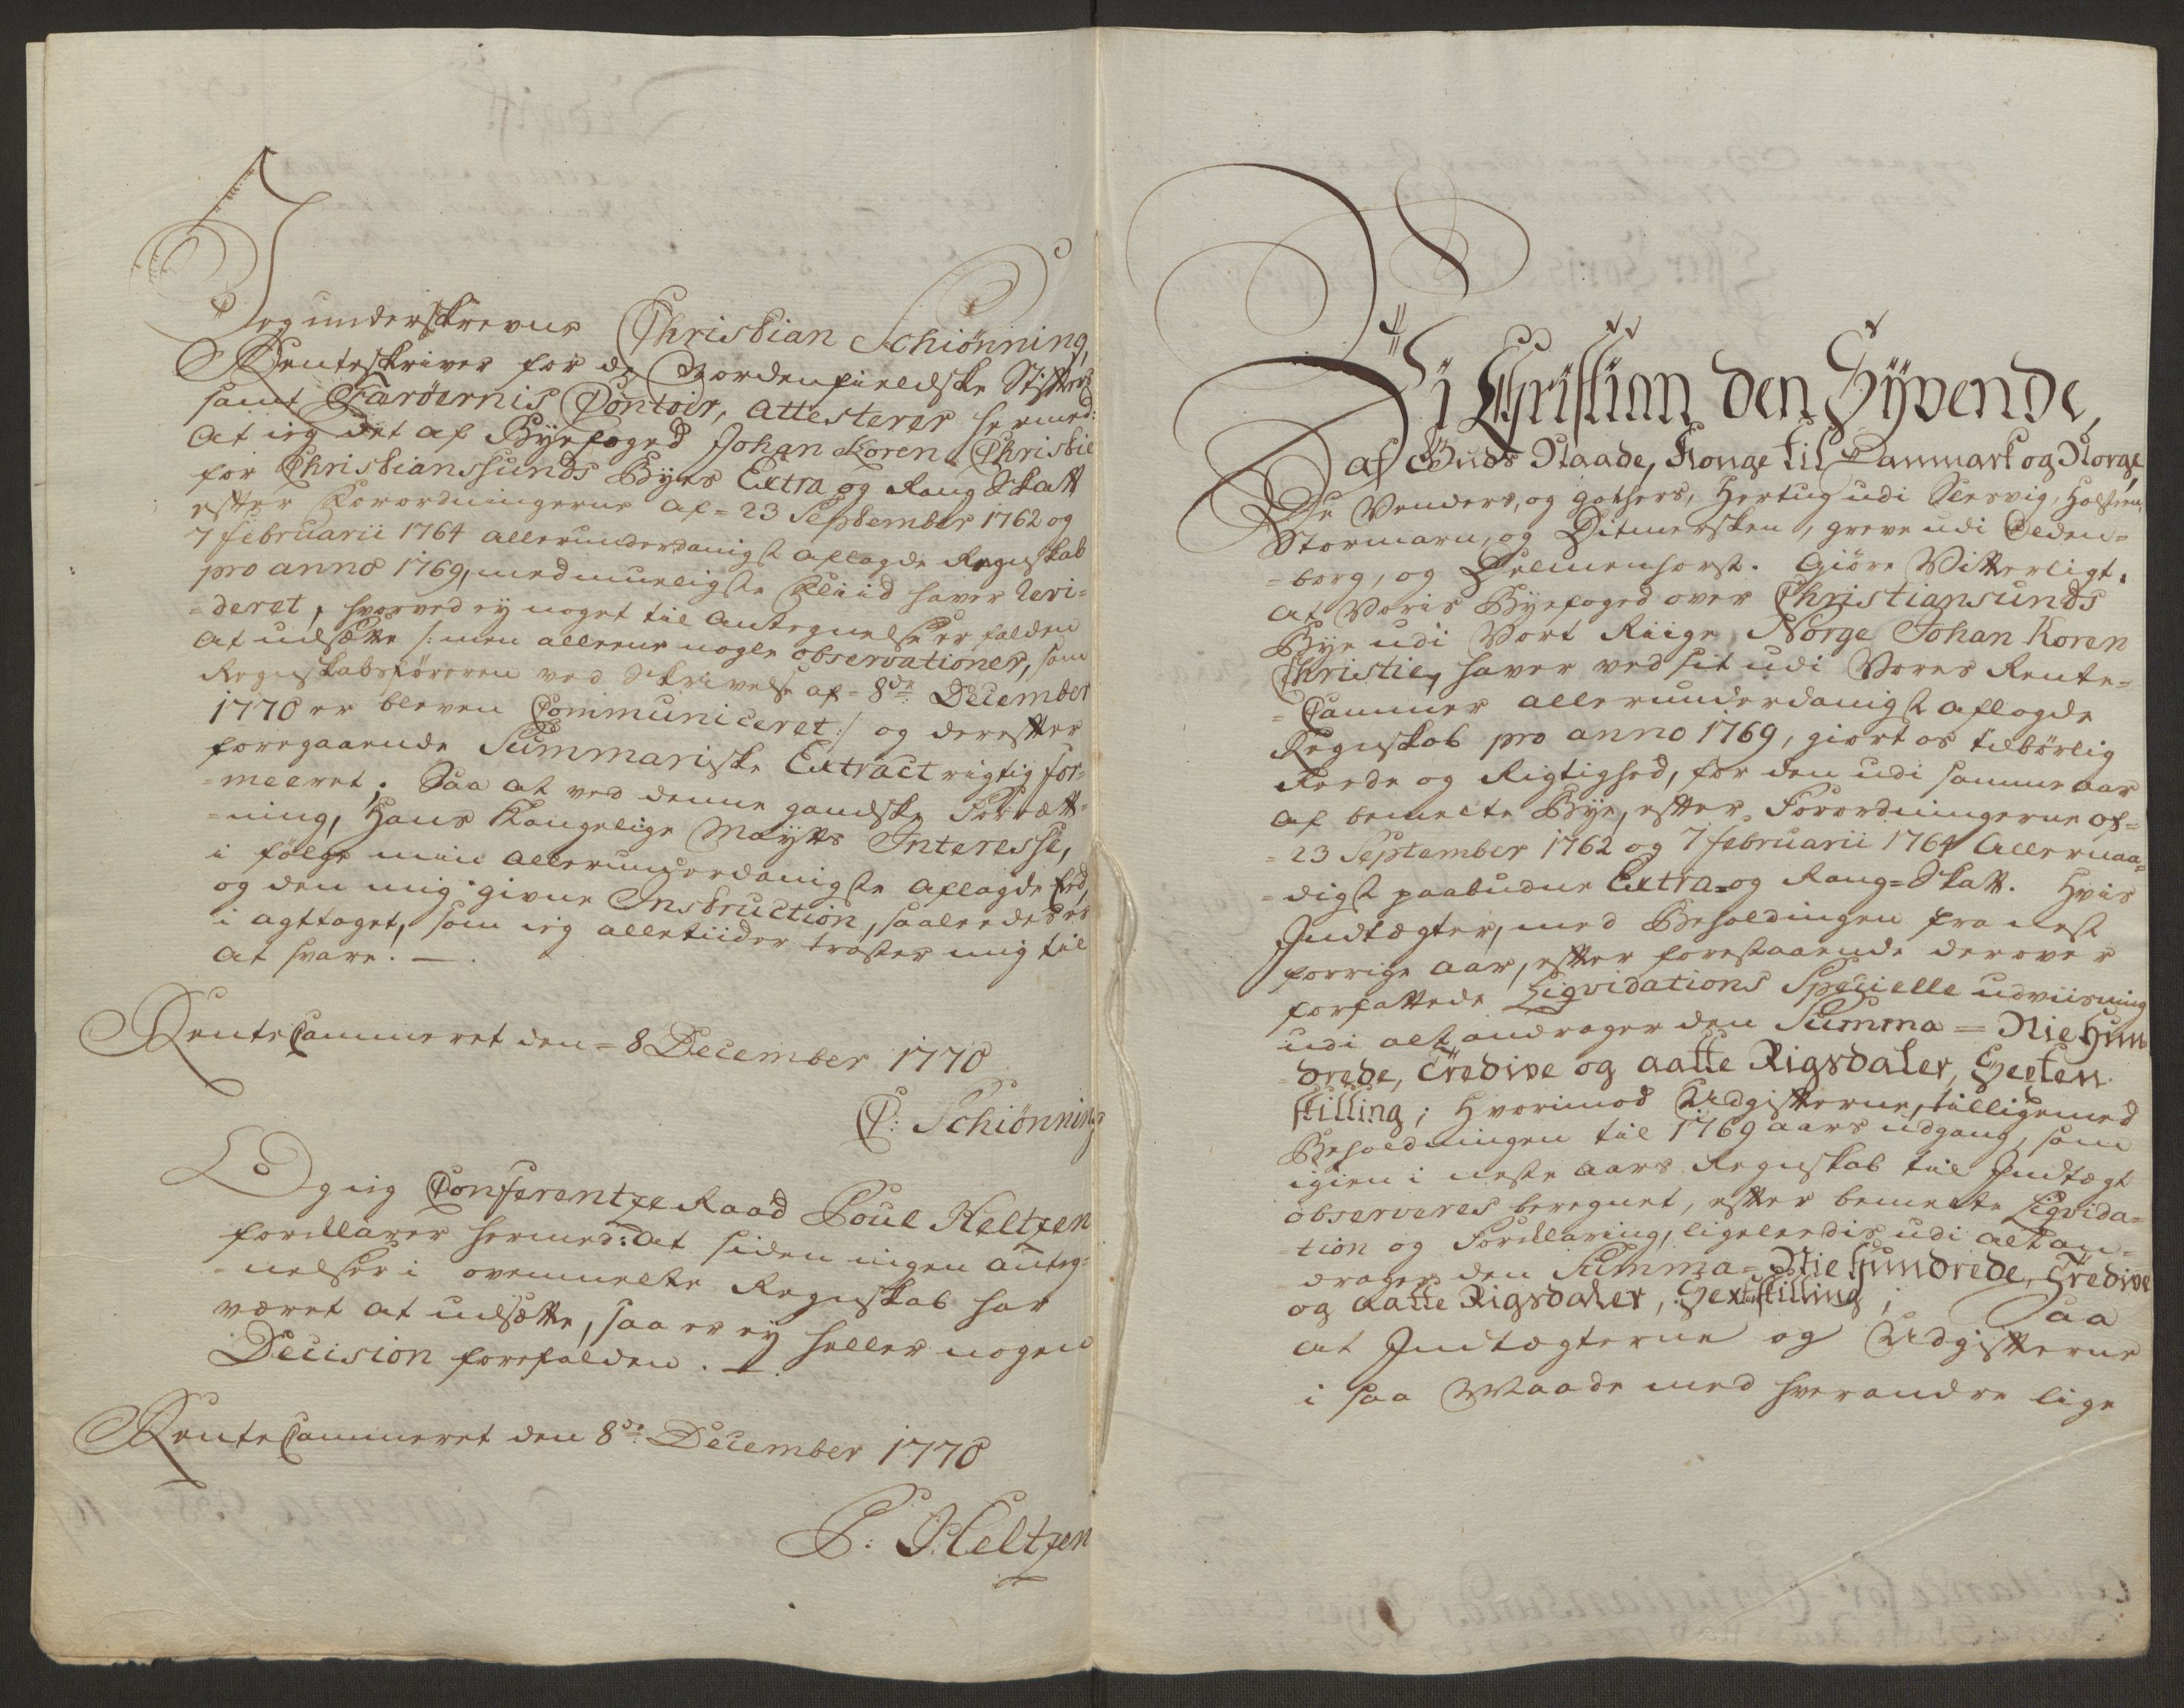 Jeg underskrevne Christian Schiönning,
Renteskriver for de Nordenfieldske Stifters
samt Færöernis Contoir, attesterer hermed:
At ieg det af Byefoged Johan Koren Christie
for Christianssunds Byes Extra og Rang Skatt
efter Forordningerne af = 23 September 1762 og
7 februarii 1764 allerunderdanigst aflagde Regnskab
pro anno 1769, med mueligste Fliid haver Revi=
=deret, hvorved ey noget til Antegnelse er falden
at udsætte /: men alleene nogle observationer, som
Regnskabsföreren ved Skrivelse af = 8de December
1770 er bleven Communiceret :/ og derefter
foregaaende Summariske Extract rigtig for=
=meeret; Saa at ved denne gandske Forrætt=
=ning, Hans Kongelige Mayts Interesse,
i fölge min allerunderdanigste aflagde Eed,
og den mig givne Instruction, saaleedes er
i agttaget, som ieg alletiider tröster mig til
at svare. —.
Rente Cammeret den = 8 December 1770
C: Schiönning
Og ieg Conferentze Raad Poul Heltzen
forklarer hermed: At siden ingen anteg=
=nelser i ovenmelte Regnskab har
været at udsætte, saa er ey heller nogen
Decision forefalden. —.
Rente Cammeret den 8de December 1770
P: Heltzen
Vi Christian den Syvende,
af Guds Naade, Konge til Danmark og Norge,
De Venders, og Gothers, Hertug udi Slesvig, Holsten,
Stormarn, og Ditmersken, greve udi Olden=
=borg, og Delmenhorst. Giöre Vitterligt,
at Voris Byefoged over Christiansunds
Bye udi Vort Riige Norge Johan Koren
Christie, haver ved sit udi Vores Rente=
=Cammer allerunderdanigst aflagde
Regnskab pro anno 1769, giort os tilbörlig
Reede og Rigtighed, for den udi samme aar
af bemelte Bye, efter Forordningerne af=
=23 September 1762 og 7 februarii 1764 Allernaa=
=digst paabudne Extra= og Rang=Skatt. Hvis
Indtægter, med Beholdingen fra nest
forrige aar, efter forestaaende derover
forfattede Liqvidations Specielle udviisning
udi alt andrager den Summa = Nie Hun
drede, Tredive og aatte Rigsdaler, Sexten
skilling; Hvorimod Udgifterne, tilligemed
Beholdningen til 1769 aars udgang, som
igien i neste aars Regnskab til Indtægt
observeres beregnet, efter bemelte Liqvida=
=tion og Forklaring, ligeleedis udi alt an=
drager den Summa = Nie hundrede, Tredive
og aatte Rigsdaler, Sexten skilling; Saa
at Indtægterne og Udgifterne
i saa Maade med hverandre lige